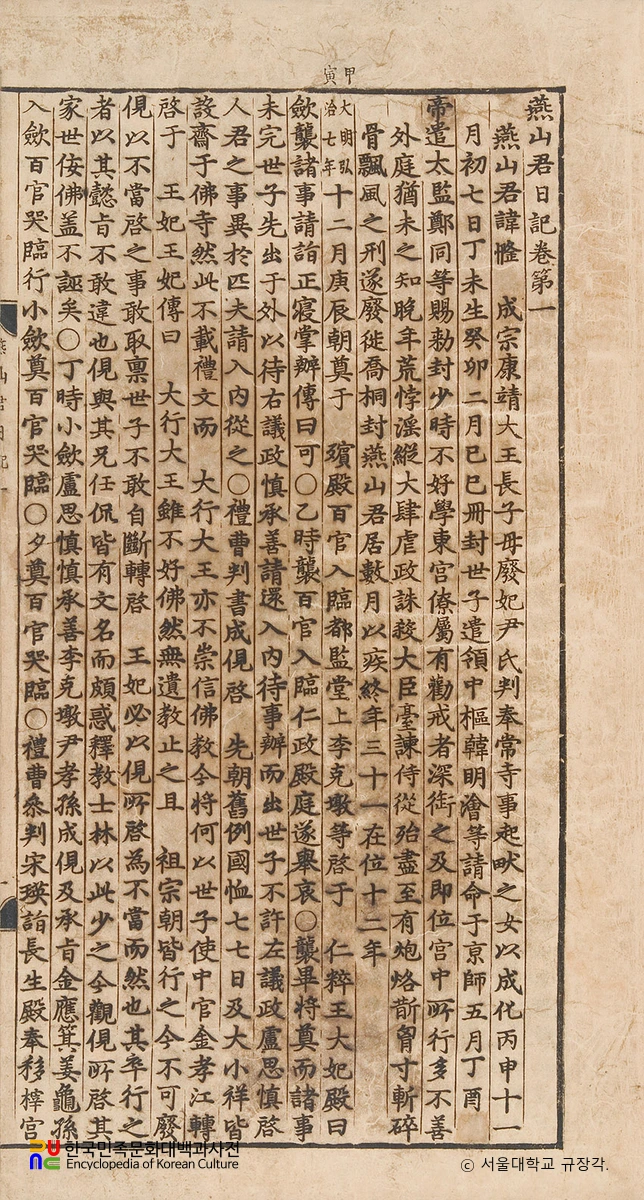 甲寅
燕山君日記卷第一
燕山君諱㦕 成宗康靖大王長子母廢妃尹氏判奉常寺事起畎之女以成化丙申十一
月初七日丁未生癸卯二月己巳冊封世子遣領中樞韓明澮等請命于京師五月丁酉
帝遣太監鄭同等賜勅封少時不好學東宮僚屬有勸戒者深銜之及即位宮中所行多不善
外庭猶未之知晚年荒悖滛縱大肆虐政誅殺大臣臺諫侍從殆盡至有炮烙斮胷寸斬碎
骨飄風之刑遂廢徙喬桐封燕山君居數月以疾終年三十一在位十二年
大明弘治七年十二月庚辰朝奠于 殯殿百官入臨都監堂上李克墩等啓于 仁粹王大妃殿曰
歛襲諸事請詣正寢掌辦傳曰可○乙時襲百官入臨仁政殿庭遂舉哀○襲畢將奠而諸事
未完世子先出于外以待右議政愼承善請還入內待事辦而出世子不許左議政盧思愼啓
人君之事異於匹夫請入內從之○禮曹判書成俔啓 先朝舊例國恤七七日及大小祥皆
設齋于佛寺然此不載禮文而 大行大王亦不崇信佛教今將何以世子使中官金孝江轉
啓于 王妃王妃傳曰 大行大王雖不好佛然無遺教止之且 祖宗朝皆行之今不可廢
俔以不當啓之事敢取稟世子不敢自斷轉啓 王妃必以俔所啓為不當而然也其卒行之
者以其懿旨不敢違也俔與其兄任侃皆有文名而頗惑釋教士林以此少之今觀俔所啓其
家世侫佛盖不誣矣○丁時小歛盧思愼愼承善李克墩尹孝孫成俔及承旨金應箕姜龜孫
入歛百官哭臨行小歛奠百官哭臨○夕奠百官哭臨○禮曹叅判宋瑛詣長生殿奉移梓宮
燕山君日記一
한국민족문화대백과사전
Encyclopedia of Korean Culture
ⓒ 서울대학교 규장각.